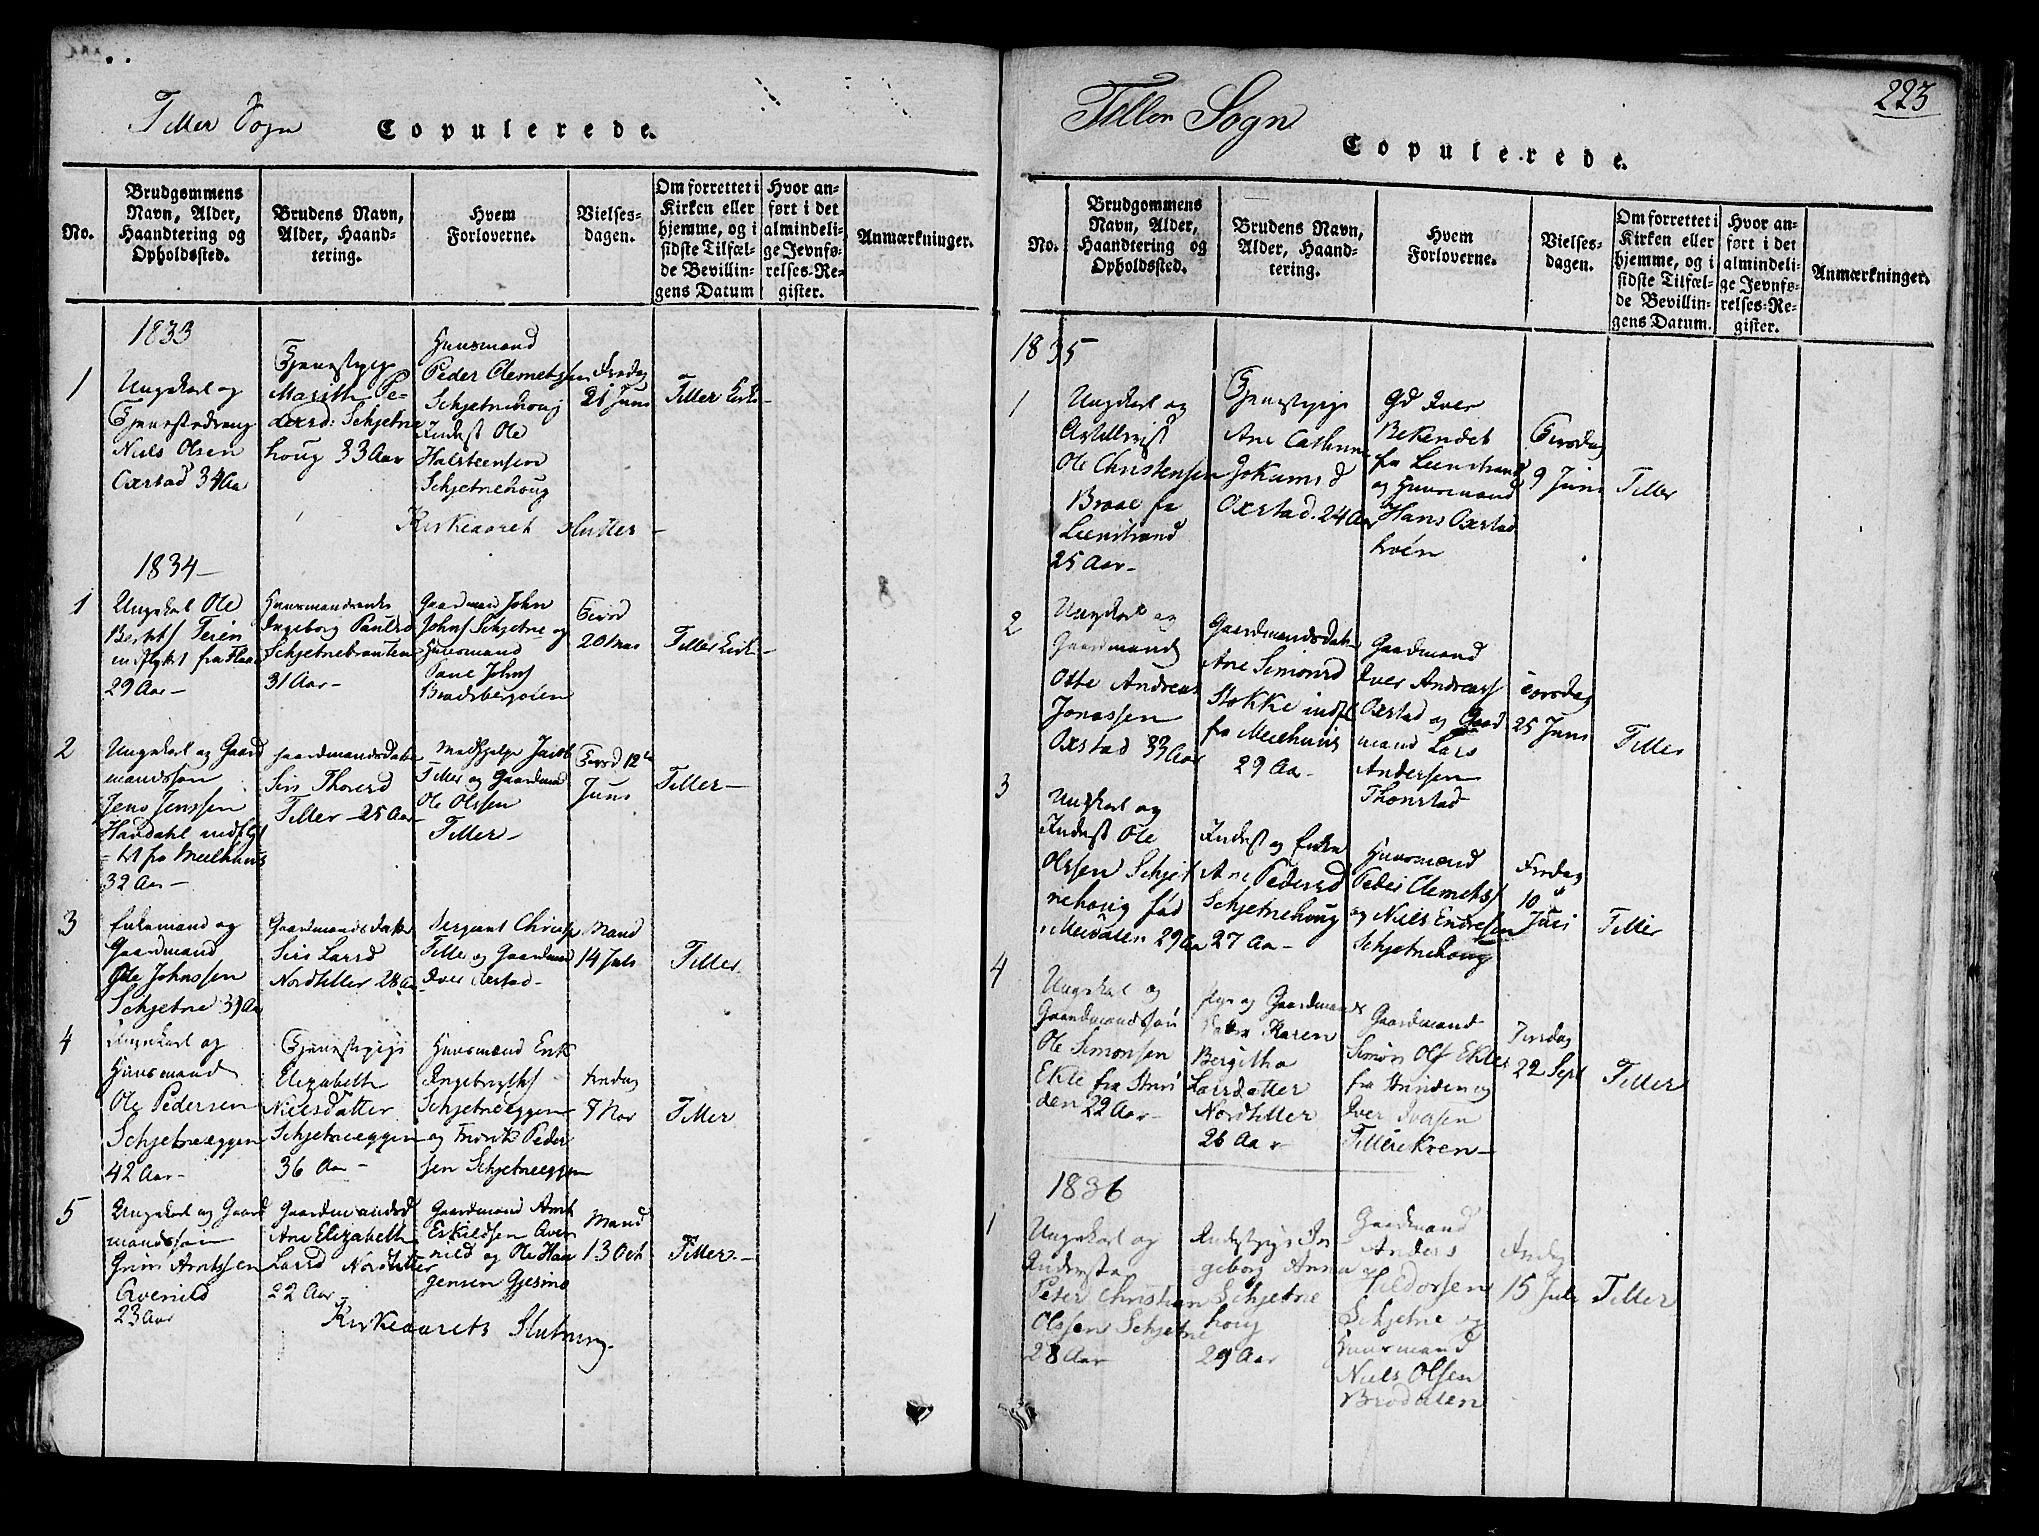 Tiller Sogn
Copulerede.
No.
Brudgommens
Navn, Alder,
Haandtering og
Opholdssted.
Brudens Navn,
Alder, Haand-
tering.
Hvem
Forloverne.
Vielses-
dagen.
Om forrettet i
Kirken eller
hjemme, og i
sidste Tilfæl-
de Bevillin-
gens Datum
Hvor an-
ført i det
almindeli-
ge Jevnfø-
relses-Re-
gister.
Anmærkninger.
1833
1
Ungekarl og
Tjenestedreng
Niels Olsen
Oxstad 34 Aar
Tjenestepige
Marith Pe-
dersd: Schjetne
houg 33 Aar
Huusmand
Peder Clemetsen
Schjetnehoug
Inderst Ole
Halsteensen
Schjetnehoug
Fredag
21 Juni
Tiller Kirke
Kirkeaaret slutter -
1834 -
1
Ungekarl Ole
Teien
indflyttet fra
29 Aar -
Ingeborg Paulsd
Schjetnebrauten
31 Aar -
Gaardmand John
Johns Schjetne og
Huusmand
Johns
Bradsbergøien
Torsd
20 Mars
Tiller Kirke
2
Ungekarl og Gaard
mandssøn
Jens Jenssen
Handahl indflyt
tet fra Meelhuus
32 Aar -
Gaardmandsdatter
Siri Thorersd
Tiller - 25 Aar -
Medhjelper Jacob
Tiller og Gaardmand
Ole Olssen
Tiller -
Torsd 12te
Juni
Tiller -
3
Enkemand og
Gaardmand
Ole Johnssen
Schjetne 39 Aar
Gaardmandsdatter
Siri Larsd
Nordtiller 28 Aar
Sergeant Christen
Tiller og Gaardmand
Iver Oxstad -
Mand
14 Juli
Tiller
4
Ungekarl og
Huusmand
Ole Pedersen
Schjetneeggen
42 Aar -
Tjenestepige
Elizabeth
Nielsdatter
Schjetneeggen
36 Aar -
Huusmænd Erik
Ingebrigts
Schjetneeggen
og Peder
sen Schjetneeggen
7 Nov
Tiller
5
Ungekarl og Gaard
mandssøn
Arntssen
Qvenild
23 Aar
Gaardmandsd
Ane Elizabeth
Larsd Nordtiller
22 Aar -
Gaardmand Arnt
Eskildsen Qve
nild og Ole Haa
gensen
Mand
13 Oct
Tiller -
Kirkeaarets Slutning.
223
Tiller Sogn
Copulerede.
No.
Brudgommens
Navn, Alder,
Haandtering og
Opholdssted.
Brudens Navn,
Alder, Haand-
tering.
Hvem
Forloverne.
Vielses-
dagen.
Om forrettet i
Kirken eller
hjemme, og i
sidste Tilfæl-
de Bevillin-
gens Datum.
Hvor an-
ført i det
almindeli-
ge Jevnfø-
relses-Re-
gister.
Anmærkninger.
1835
1
Ungekarl og
Artillerist
Ole Christensen
Braae fra
Leenstrand
25 Aar -
Tjenestepige
Ane Cathrine
Jokumsd
Oxstad. 24 Aar
Gd Iver
fra Leenstrand
og Huusmand
Hans Oxstad
Torsdag
9 Juni
Tiller
2
Ungekarl og
Gaardmand
Otte Andreas
Jonassen
Oxstad 33 Aar
Gaardmandsdatter
Ane Simonsd
Stokke indfl
fra Meelhuus
29 Aar -
Gaardmand
Iver Andreas
Oxstad og Gaard
mand Lars
Andersen
Thonstad
Torsdag
25 Juni
Tiller
3
Ungekarl og
Inderst Ole
Olssen Schjet
nehoug fød
i Meldalen 29 Aar
Inderst og Enke
Ane Pedersd
Schjetnehoug
27 Aar -
Huusmænd
Peder Clemets
og Niels Endresen
Schjetnehoug
Fredag
10
Juli
Tiller
4
Ungekarl og
Gaardmandssøn
Ole Simonsen
Ekle fra Strin
den 22 Aar -
Pige og Gaardmands
datter Karen
Bergitha
Larsdatter
Nordtiller
26 Aar
Gaardmand
Simon Ols Ekle
fra Strinden og
Iver Iversen
Tillerekren -
Tirsdag
22 Sept
Tiller
1836
1
Ungekarl og
Peter Christian
Olssen Schjetne
28 Aar
In
geborg Anna
Schjetne
houg
29 Aar
Gaardmand
Anders
Schjetne og
Huusmand
Niels Olsen
Brodalen
15 Juli
Tiller